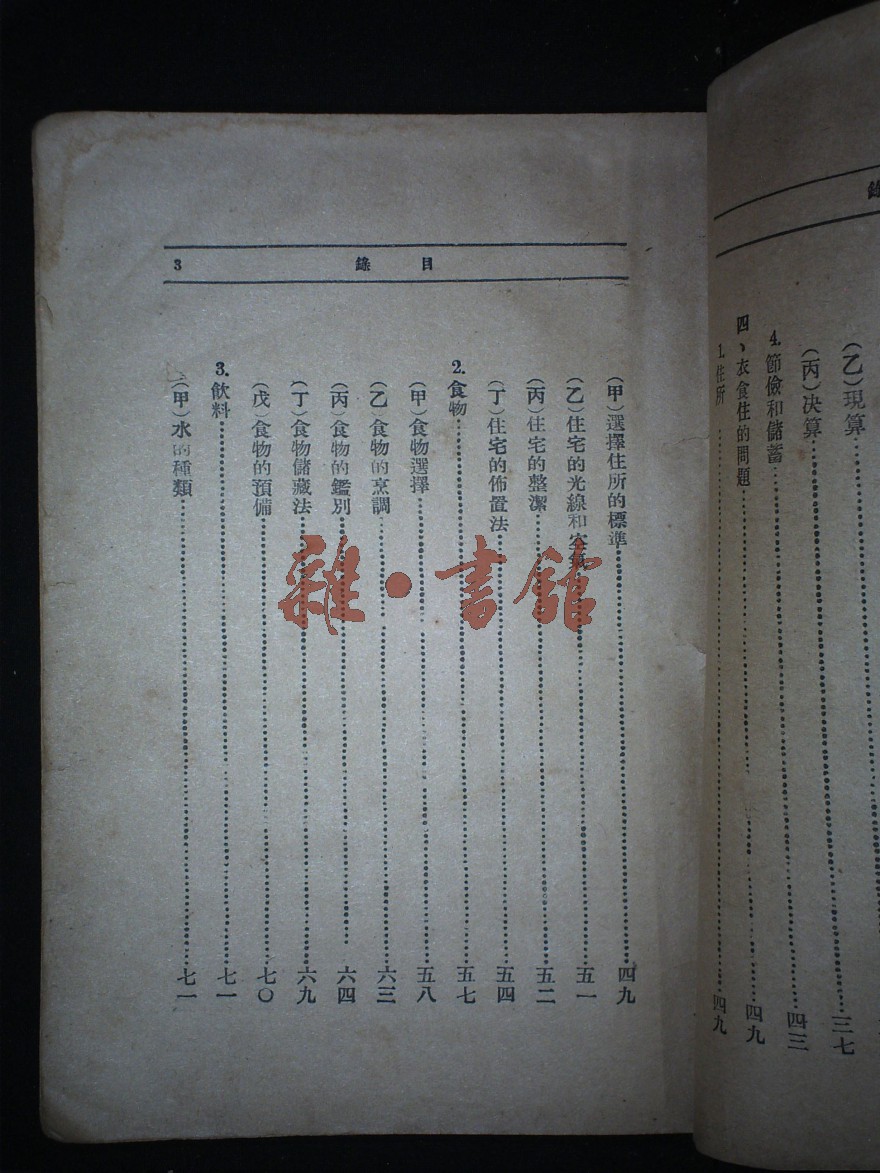 錄
(乙)現算⋯⋯三七
(丙)決算⋯⋯四三
4.節儉和儲蓄⋯⋯四三
四、衣食住的問題⋯⋯四九
1.住所⋯⋯四九
目錄
3
(甲)選擇住所的標準⋯⋯四九
(乙)住宅的光線和空氣⋯⋯五一
(丙)住宅的整潔⋯⋯五二
(丁)住宅的佈置法⋯⋯五四
2.食物⋯⋯五七
(甲)食物選擇⋯⋯五八
(乙)食物的烹調⋯⋯六三
(丙)食物的鑑別⋯⋯六四
(丁)食物儲藏法⋯⋯六九
(戊)食物的預備⋯⋯七〇
3.飲料⋯⋯七一
(甲)水的種類⋯⋯七一
雜·書館